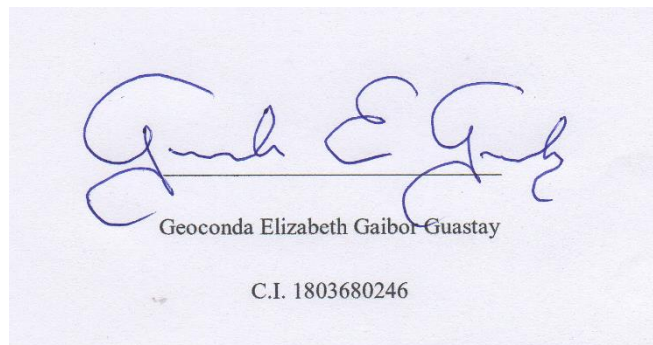 Geoconda Elizabeth Gaibor Guastay
C.I. 1803680246